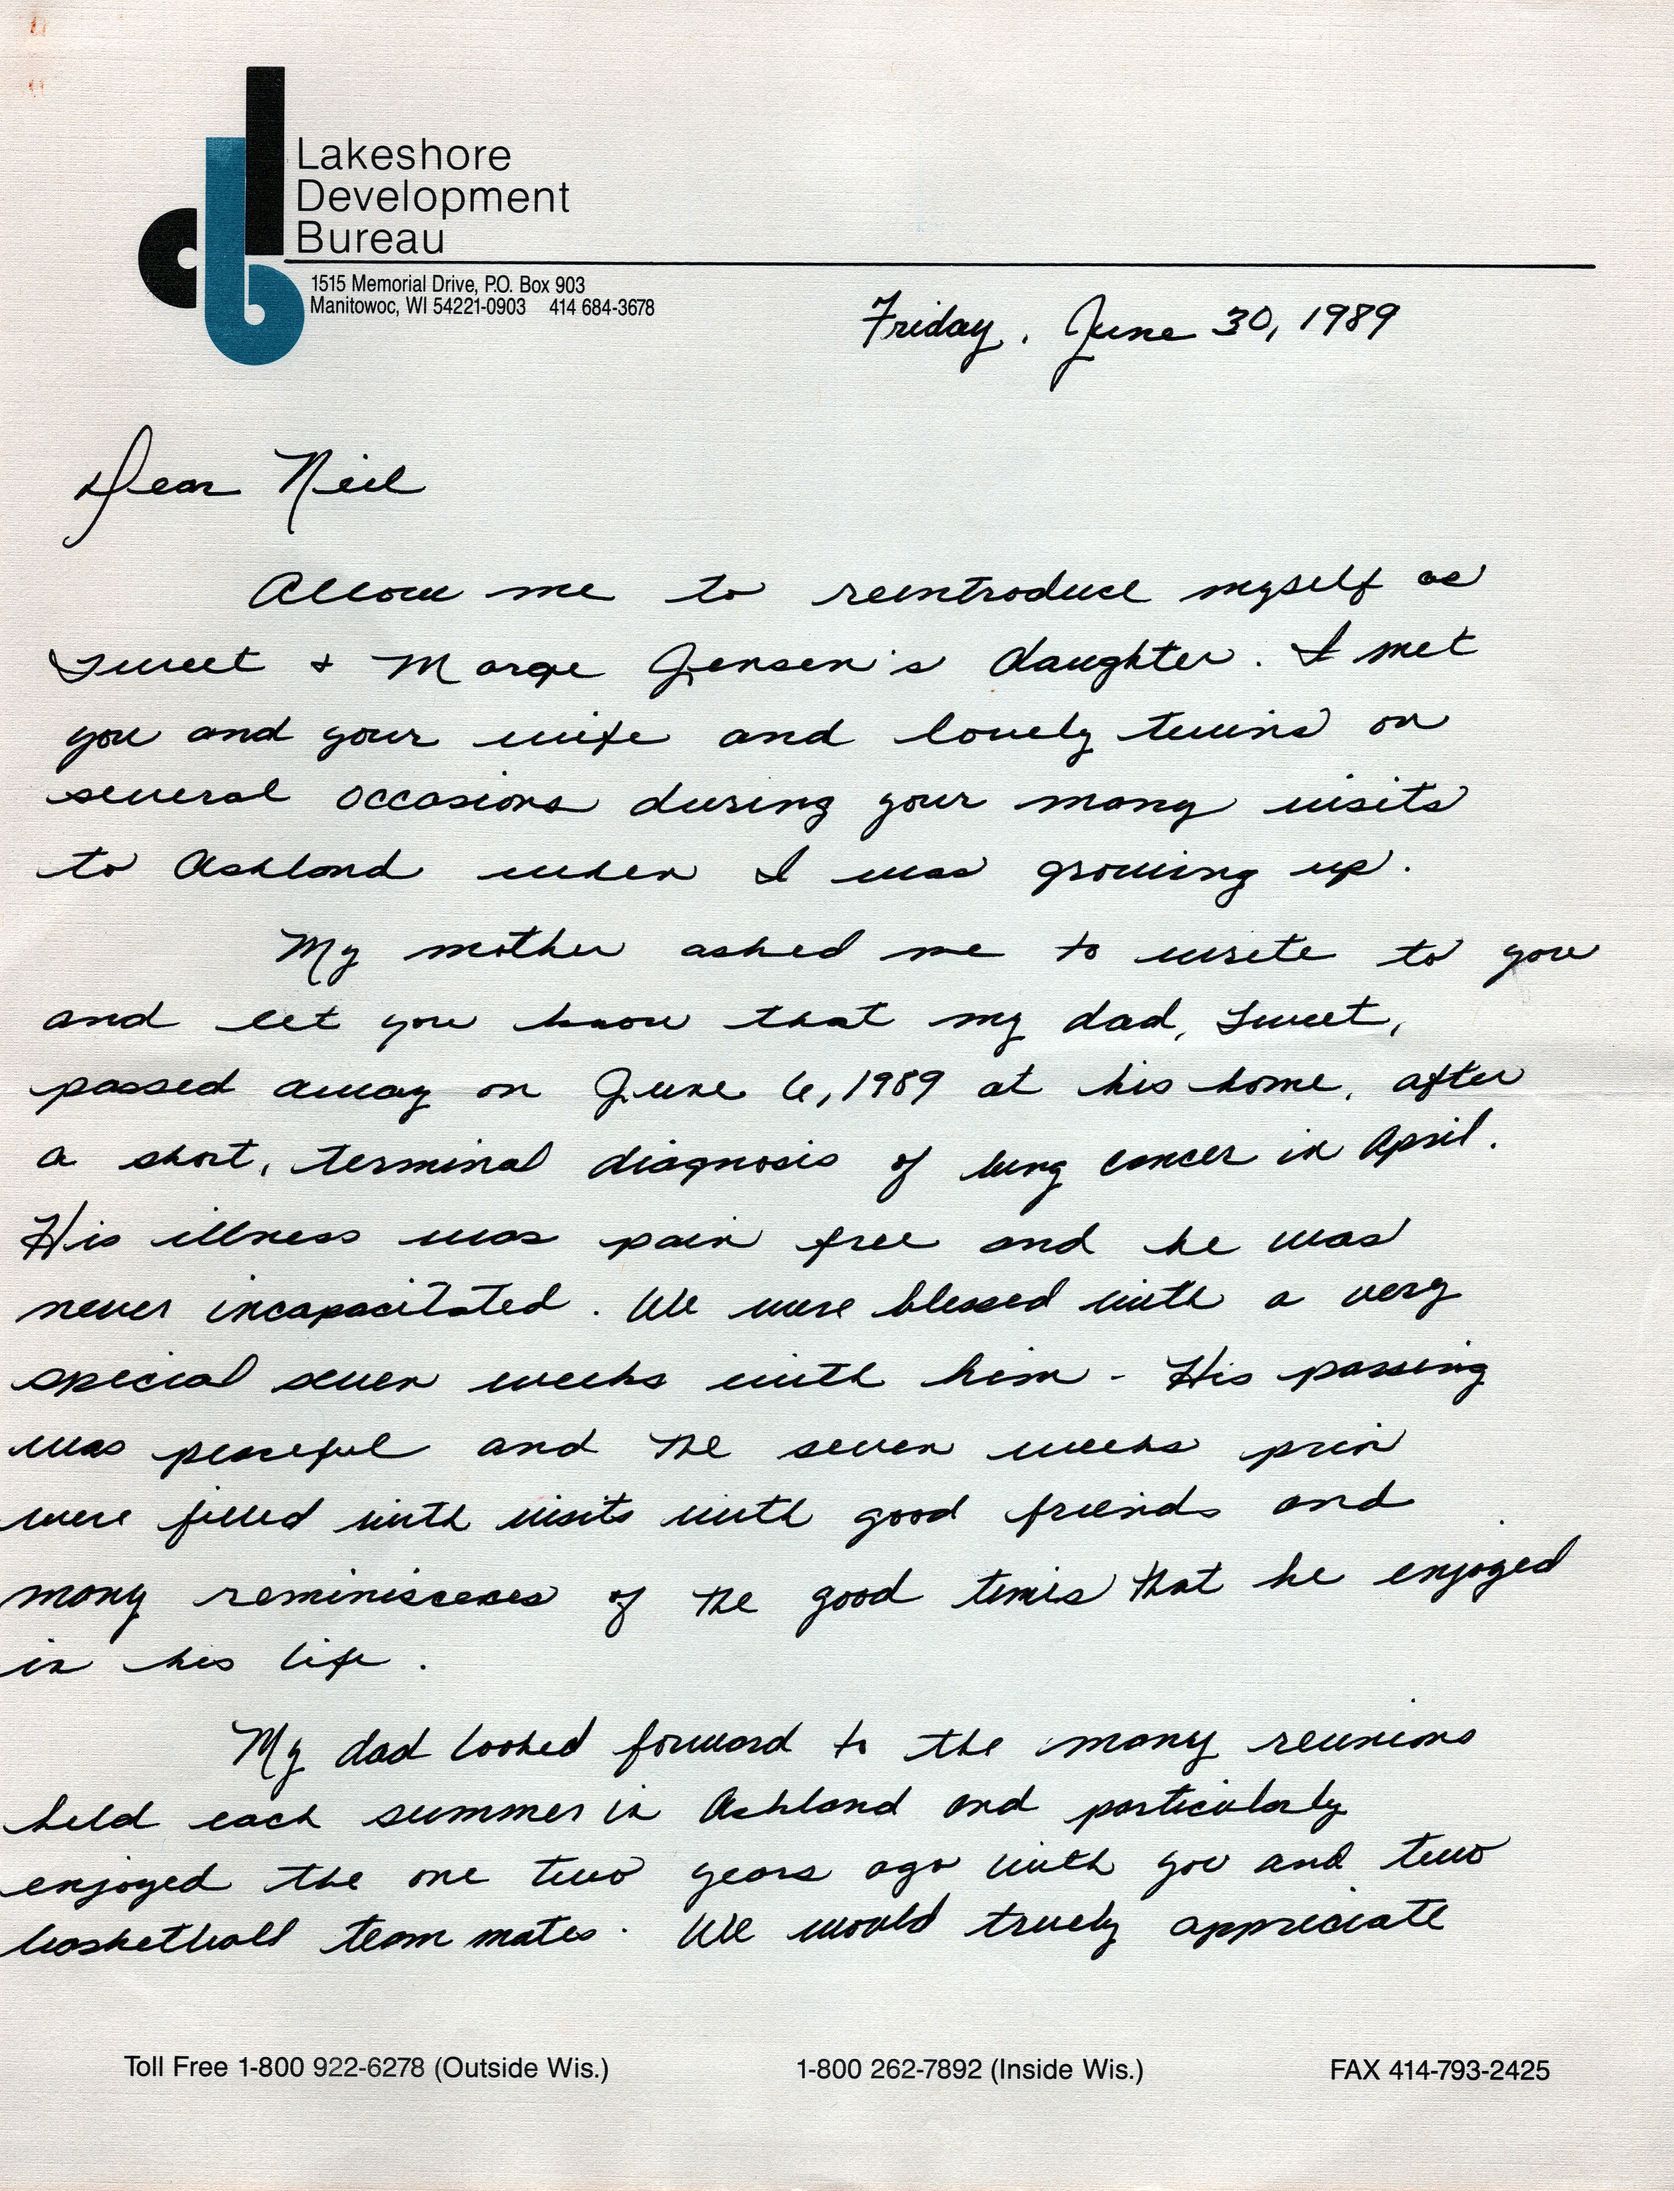 Lakeshore
Development
Bureau
1515 Memorial Drive, P.O. Box 903
Manitowoc, WI 54221-0903 414 684-3678
Friday, June 30, 1989
Dear Neil
Allow me to reintroduce myself as
Sweet & Marge Jensen's daughter. I met
you and your wife and lovely twins on
several occasions during your many visits
to Ashland when I was growing up.
My mother asked me to write to you
and let you know that my dad, Sweet,
passed away on June 6, 1989 at his home, after
a short, terminal diagnosis of lung cancer in April.
His illness was pain free and he was
never incapacitated. We were blessed with a very
special seven weeks with him - His passing
was peaceful and the seven weeks prior
were filled with visits with good friends and
many reminisces of the good times that he enjoyed
in his life.
My dad looked forward to the many reunions
held each summer in Ashland and particularly
enjoyed the one two years ago with you and two
basketball team mates. We would truely appreciate
Toll Free 1-800 922-6278 (Outside Wis.) 1-800 262-7892 (Inside Wis.) FAX 414-793-2425